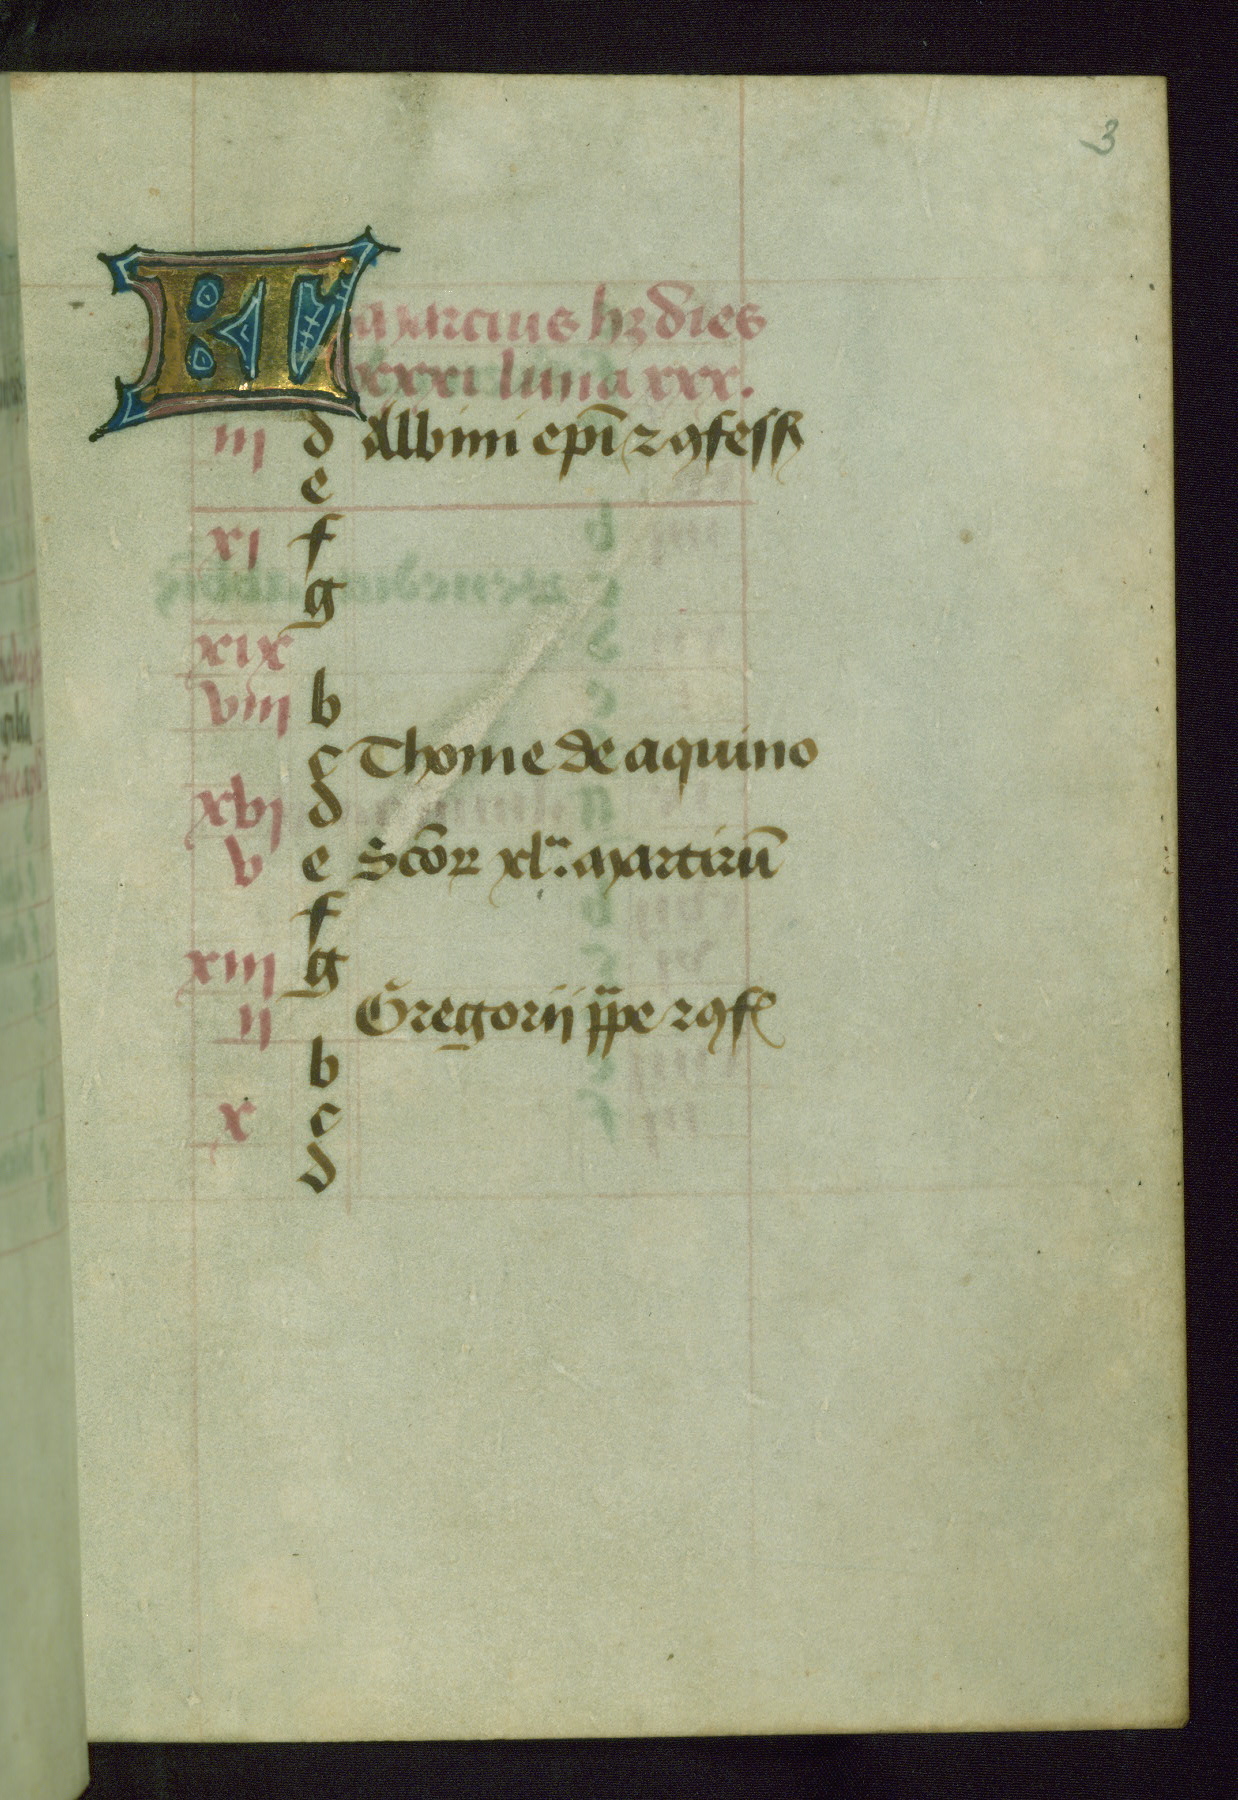 3
KL Marcius hꝫ dies
xxxi luna xxx.
iii d Albini epī ⁊ ꝯfess
e
xi f
g
xix
viii b
c Thome de aquino
xvi d
v e Scōꝝ xl. martirū
f
xiii g
ii Gregorii ppe ⁊ ꝯf
b
x c
d